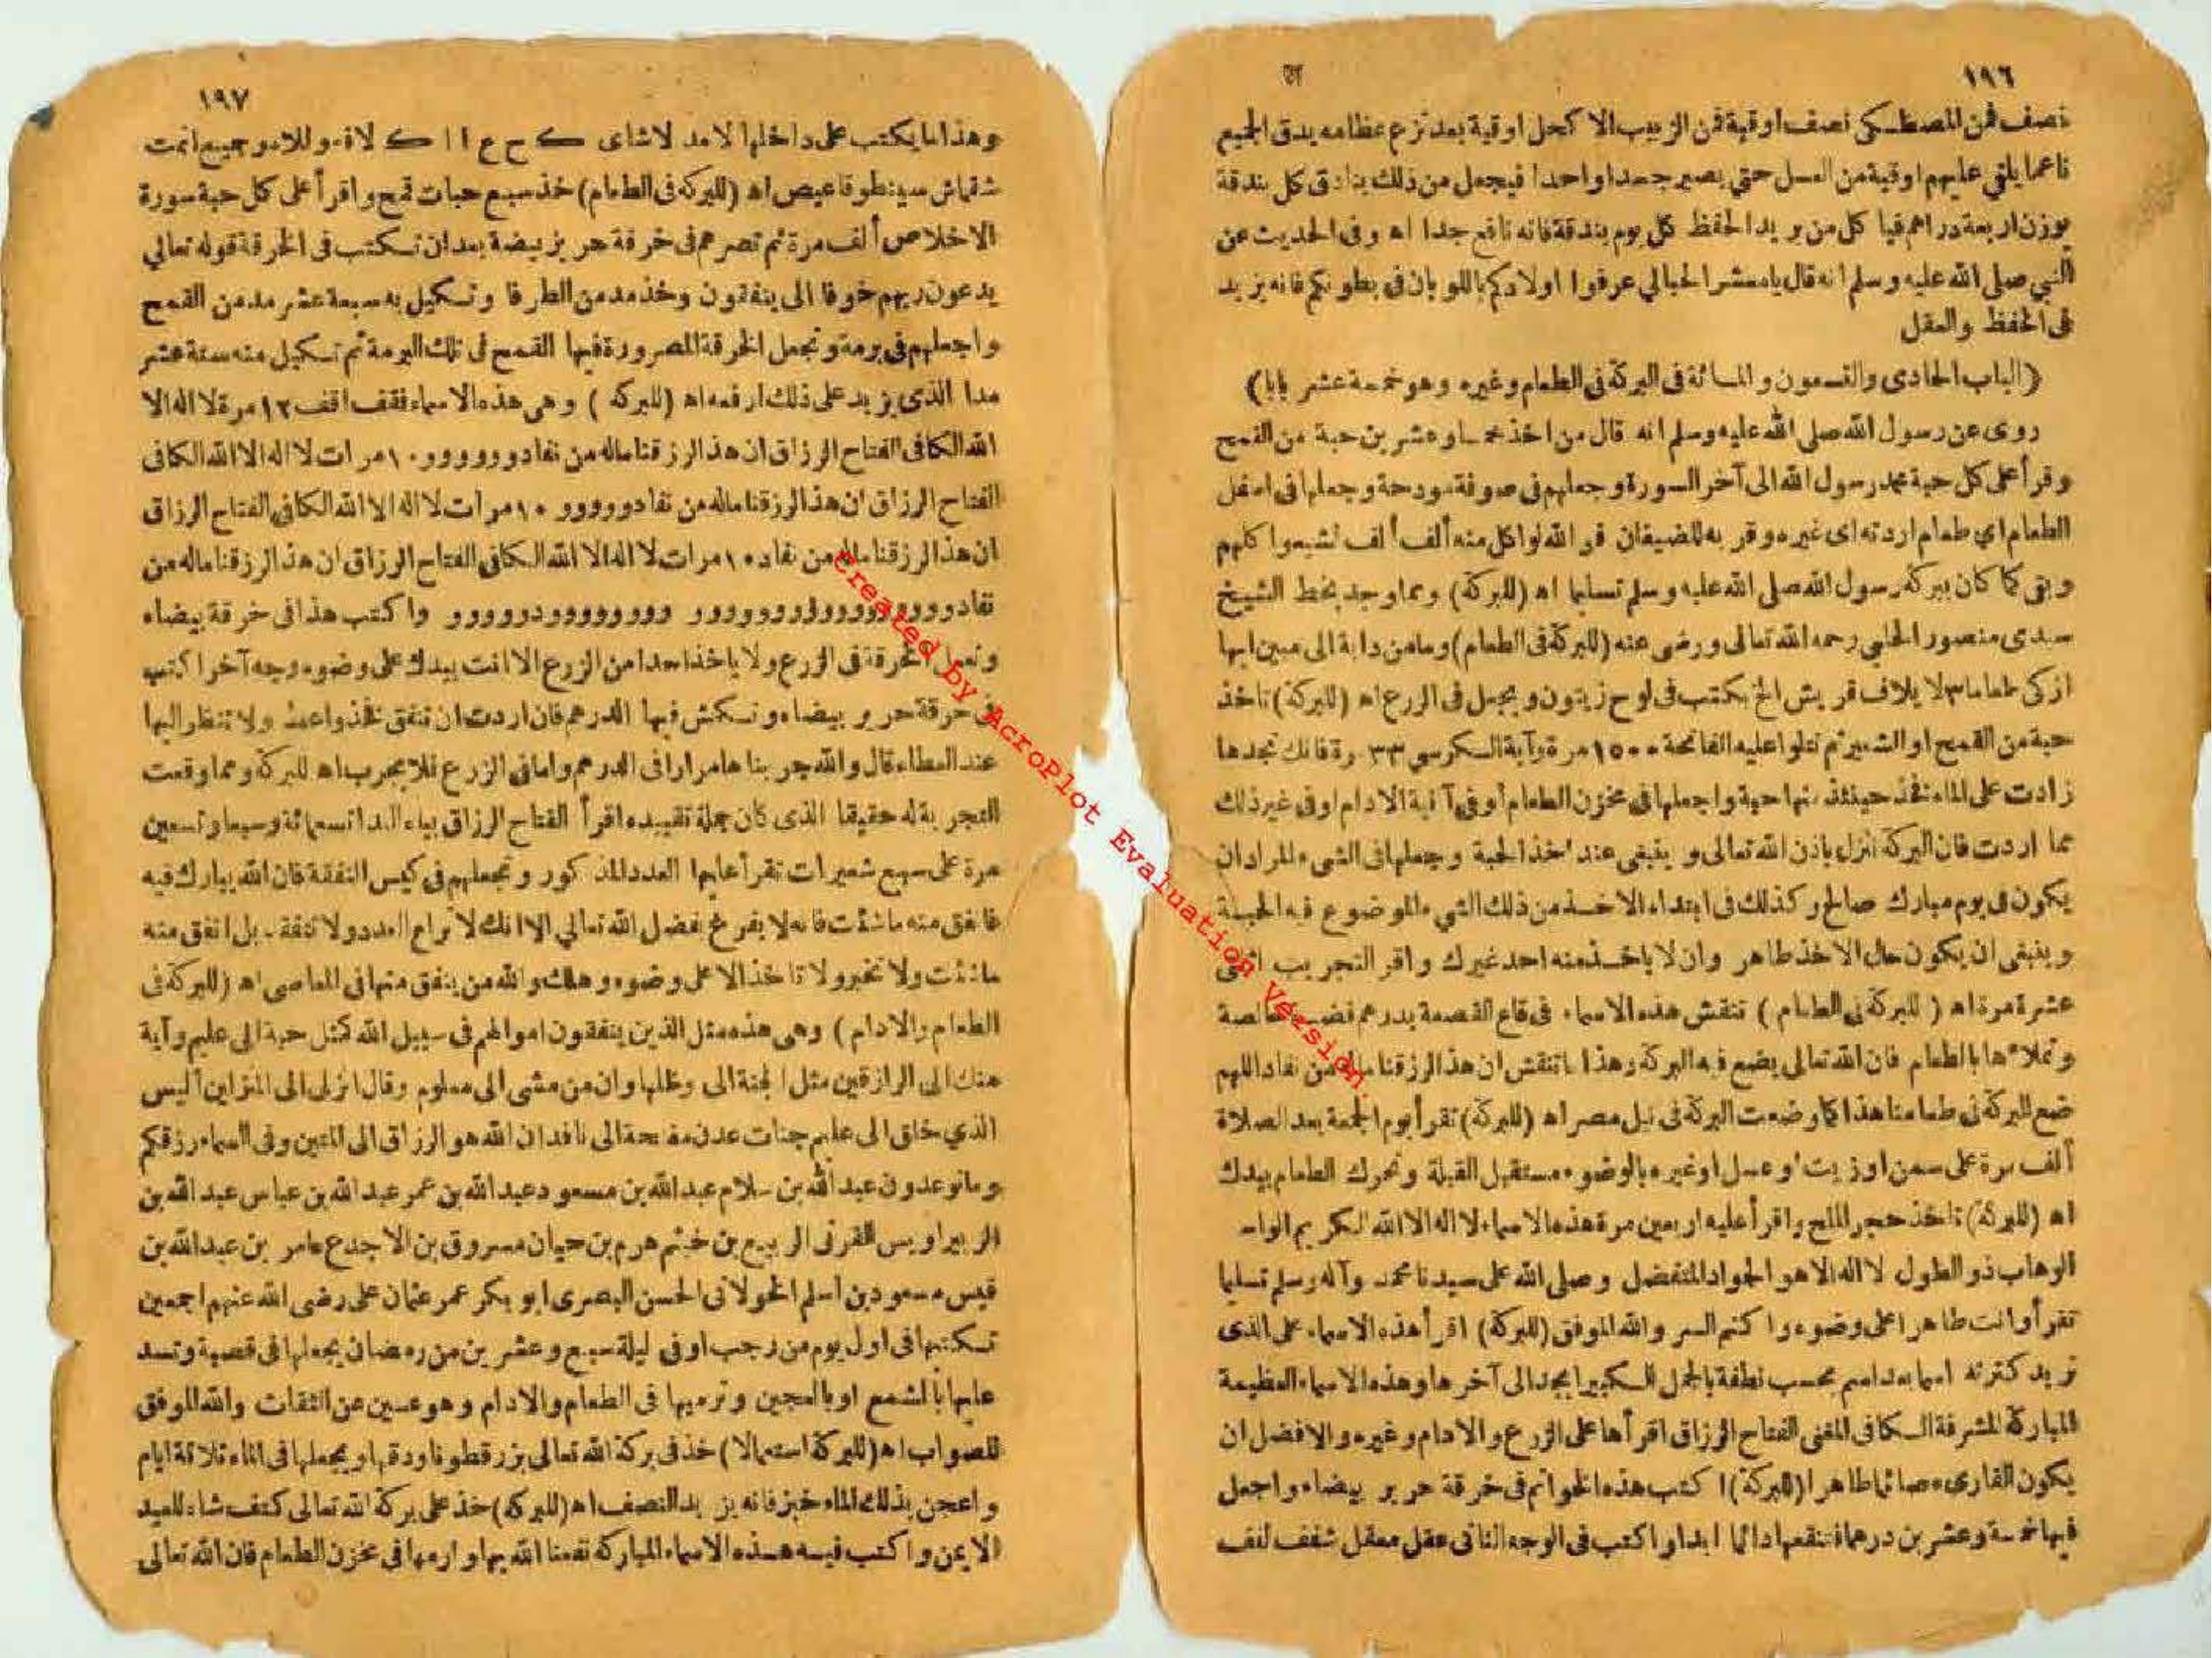 ١٩٦
نصف ثمن المصطكى نصف اوقية ثمن الزبيب الاكحل اوقية بعد نزع عظامه يدق الجميع
ناعما يلقى عليهم اوقية من العسل حتى يصير جسدا واحدا فيجعل من ذلك بنادق كل بندقة
بوزن اربعة دراهم فيا كل من يريد الحفظ كل يوم بندقة فانه نافع جدا اه وفى الحديث عن
النبي صلى الله عليه وسلم انه قال يا معشر الحبالي عرفوا اولادكم باللوبان فى بطونكم فانه يزيد
فى الحفظ والعقل
(الباب الحادى والتسعون والمائة فى البركة فى الطعام وغيره وهو خمسة عشر بابا)
روى عن رسول الله صلى الله عليه وسلم انه قال من اخذ خمسا وعشرين حبة من القمح
وقرأ على كل حبة محمد رسول الله الى آخر السورة وجعلهم فى صوفة وجعلها فى اسفل
الطعام اي طعام اردته اى غيره وقربه للضيفان فوالله لو اكل منه ألف ألف لشبعوا كلهم
وبقى كما كان ببركة رسول الله صلى الله عليه وسلم تسليما اه (للبركة) ومما وجد بخط الشيخ
سيدى منصور الحلبى رحمه الله تعالى ورضى عنه (للبركة فى الطعام) وما من دابة الى مبين ايها
ازكى طعاما لايلاف قريش الخ يكتب فى لوح زيتون ويجعل فى الزرع اه (للبركة) تاخذ
حبة من القمح او الشعير ثم تتلوا عليه الفاتحة ١٥٠٠ مرة وآية الكرسى ٣٣ رة فانك تجدها
زادت على الماء فخذ حينئذ منها حبة واجعلها فى مخزن الطعام أو فى آنية الادام او فى غير ذلك
مما اردت فان البركة تنزل باذن الله تعالى وينبغى عند اخذ الحبة وجعلها فى الشىء المراد ان
يكون فى يوم مبارك صالح وكذلك فى ابتداء الاخذ من ذلك الشىء الموضوع فيه الحبة
وينبغى ان يكون حال الاخذ طاهر وان لا ياخذ منه احد غيرك واقر التجريب
عشرة مرة اه (للبركة فى الطعام) تنقش هذه الاسماء فى قاع القصعة بدرهم فضة خالصة
وتملاءها بالطعام فان الله تعالى يضع فيه البركة وهذا ما تنقش ان هذا لرزقنا ماله من نفاد اللهم
ضع البركة فى طعامنا هذا كما وضعت البركة فى نيل مصر اه (للبركة) تقرأ يوم الجمعة بعد الصلاة
ألف مرة على سمن او زيت او عسل او غيره بالوضوء مستقبل القبلة وتحرك الطعام بيدك
اه (للبركة) تاخذ حجر الملح واقرأ عليه اربعين مرة هذه الاسماء لا اله الا الله الكريم
الوهاب ذو الطول لا اله الا هو الجواد المتفضل وصلى الله على سيدنا محمد وآله وسلم تسليما
تقرأ وانت طاهرا على وضوء واكتم السر والله الموفق (للبركة) اقرأ هذه الاسماء على الذى
تريد كثرته اسما بعد اسم بحسب نطفة بالجمل الكبير ابجد الى آخرها وهذه الاسماء العظيمة
المباركة المشرفة الكافى المغنى الفتاح الرزاق اقرأها على الزرع والادام وغيره والافضل ان
يكون القارىء صائما طاهرا (للبركة) اكتب هذه الخواتم فى خرقة حرير بيضاء واجعل
فيها خمسة وعشرين درهما فتنقعها دائما ابدا واكتب فى الوجه الثانى عقل معقل شفف لفف
١٩٧
وهذا ما يكتب على داخلها لامد لاشاى ك ح ع ا ا ك وجميع
خذ سبع حبات قمح واقرأ على كل حبة سورة (للبركة فى الطعام)
الاخلاص ألف مرة ثم تصرهم فى خرقة حرير بيضة بعد ان تكتب فى الخرقة قوله تعالي
يدعون ربهم خوفا الى ينفقون وخذ مد من الطرفا وتكيل به سبعة عشر مد من القمح
واجعلهم فى برمة وتجعل الخرقة المصرورة فيها القمح فى تلك البرمة ثم تكيل منه ستة عشر
مدا الذى يزيد على ذلك ارفعه اه (للبركه) وهى هذه الاسماء فقف اقف ١٢ مرة لا اله الا
الله الكافى الفتاح الرزاق ان هذا لرزقنا ماله من نفاد وووووو ١٠ مرات لا اله الا الله الكافى
الفتاح الرزاق ان هذا لرزقنا ماله من نفاد وووووو ١٠ مرات لا اله الا الله الكافى الفتاح الرزاق
ان هذا لرزقنا ماله من نفاد ١٠ مرات لا اله الا الله الكافى الفتاح الرزاق ان هذا لرزقنا ماله من
نفاد واكتب هذا فى خرقة بيضاء
الخرقة فى الزرع ولا ياخذ احدا من الزرع الا انت بيدك على وضوء وجه آخر اكتب
فى خرقة حرير بيضاء وتكمش فيها الدرهم فان اردت ان تنفق فخذ واعط ولا تنظر اليها
عند العطاء قال والله جربناها مرارا فى الدرهم واما فى الزرع فلا يجرب اه للبركة ومما وقعت
التجربة له حقيقا الذى كان جملة تقييده اقرأ الفتاح الرزاق بياء الندا تسعمائة وسبعا وتسعين
مرة على سبع شعيرات تقرأ عليها العدد المذكور وتجعلهم فى كيس النفقة فان الله يبارك فيه
فانفق منه ما شئت فانه لا يفرغ بفضل الله تعالي الا انك لا تراع العدد ولا تنفق بل انفق منه
ما شئت ولا تخبر ولا تاخذ الا على وضوء وهلك والله من ينفق منها فى المعاصى اه (للبركة فى
الطعام والادام) وهى هذه مثل الذين ينفقون اموالهم فى سبيل الله كمثل حبة الى عليم وآية
منك الى الرازقين مثل الجنة الى وظلها وان من شىء الى معلوم وقال انزلى الى المنزلين أليس
الذي خلق الى عليم جنات عدن مفتحة الى نافد ان الله هو الرزاق الى المتين وفى السماء رزقكم
وما توعدون عبد الله بن سلام عبد الله بن مسعود عبد الله بن عمر عبد الله بن عباس عبد الله بن
الزبير اويس القرنى الربيع بن خيثم هرم بن حيان مسروق بن الاجدع عامر بن عبد الله بن
قيس مسعود بن اسلم الخولانى الحسن البصرى ابو بكر عمر عثمان على رضى الله عنهم اجمعين
تكتبها فى اول يوم من رجب او فى ليلة سبع وعشرين من رمضان يجعلها فى قصبة وتسد
عليها بالشمع او بالعجين وترميها فى الطعام والادام وهو عن الثقات والله الموفق
للصواب اه (للبركة استعمالا) خذ فى بركة الله تعالى بزرقطونا ودقها ويجعلها فى الماء ثلاثة ايام
واعجن بذلك الماء خبز فانه يزيد النصف اه (للبركه) خذ على بركة الله تعالى كتف شاء للعيد
الايمن واكتب فيه هذه الاسماء المباركة نفعنا الله بها وارمها فى مخزن الطعام فان الله تعالى
Created by AcroPlot Evaluation Version